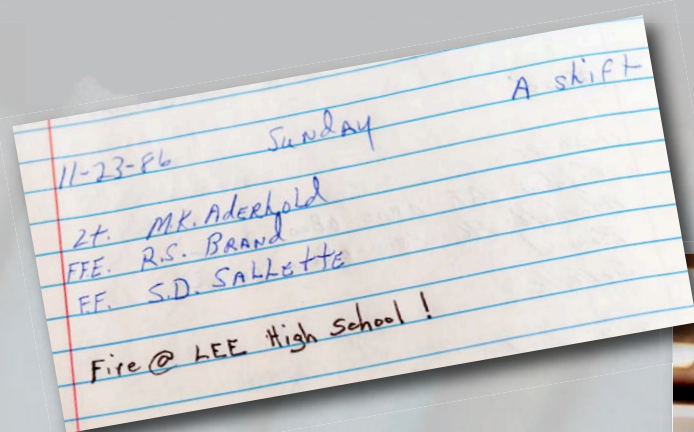 A shift
11-23-86 Sunday
Lt. M.K. Aderhold
FFE. R.S. Brand
FF. S.D. Sallette
Fire @ LEE High School !